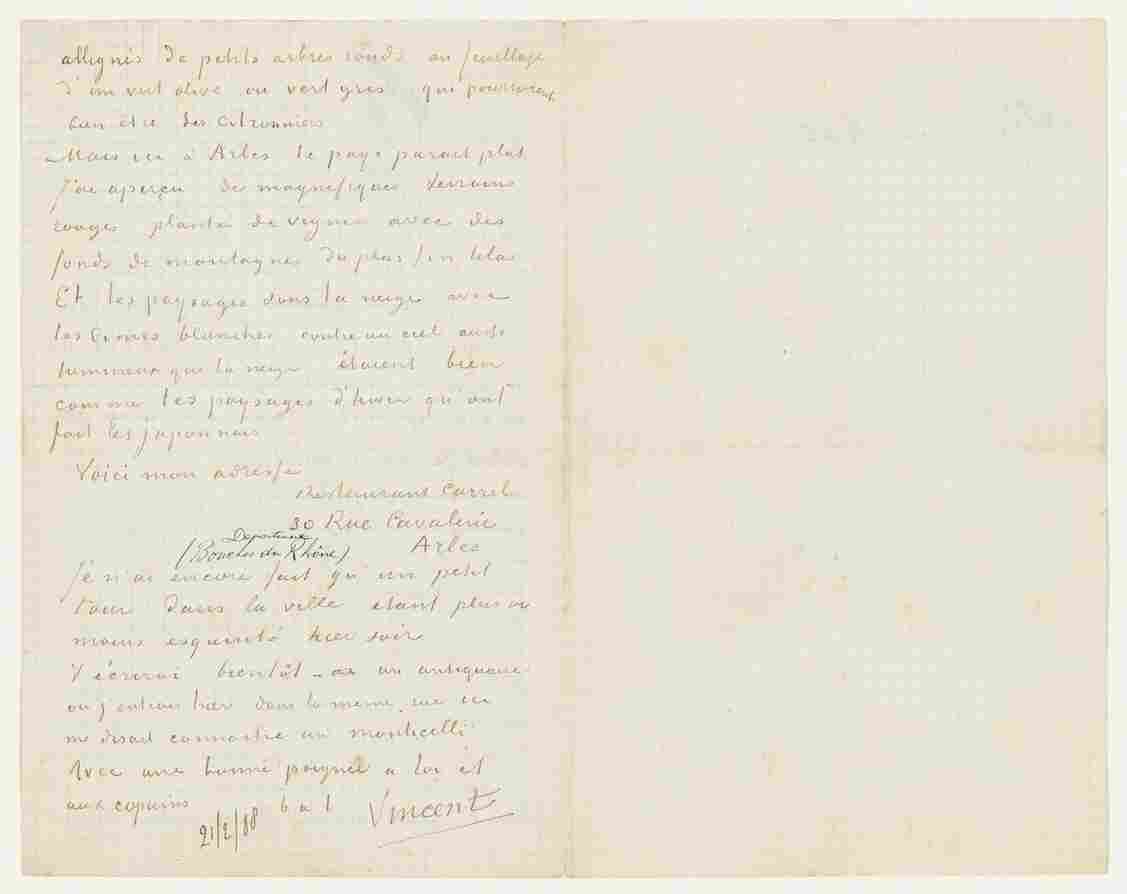 allignés de petits arbres ronds au feuillage
d'un vert olive ou vert gris qui pourraient
bien être des citronniers
Mais ici à Arles le pays parait plat.
J'ai aperçu de magnifiques terrains
rouges plantés de vignes avec des
fonds de montagnes du plus fin lilas
Et les paysages dans la neige avec
les cimes blanches contre un ciel aussi
lumineux que la neige étaient bien
comme les paysages d'hiver qu'ont
fait les japonnais
Voici mon adresse
Restaurant Carrel
30 Rue Cavalerie
Departement
(Bouches du Rhône) Arles
Je n'ai encore fait qu'un petit
tour dans la ville étant plus ou
moins esquinté hier soir
T'écrirai bientôt – un antiquaire
ou j'entrais hier dans la meme rue ici
me disait connaitre un monticelli
Avec une bonne poignée a toi et
aux copains t à t Vincent
21/2/88